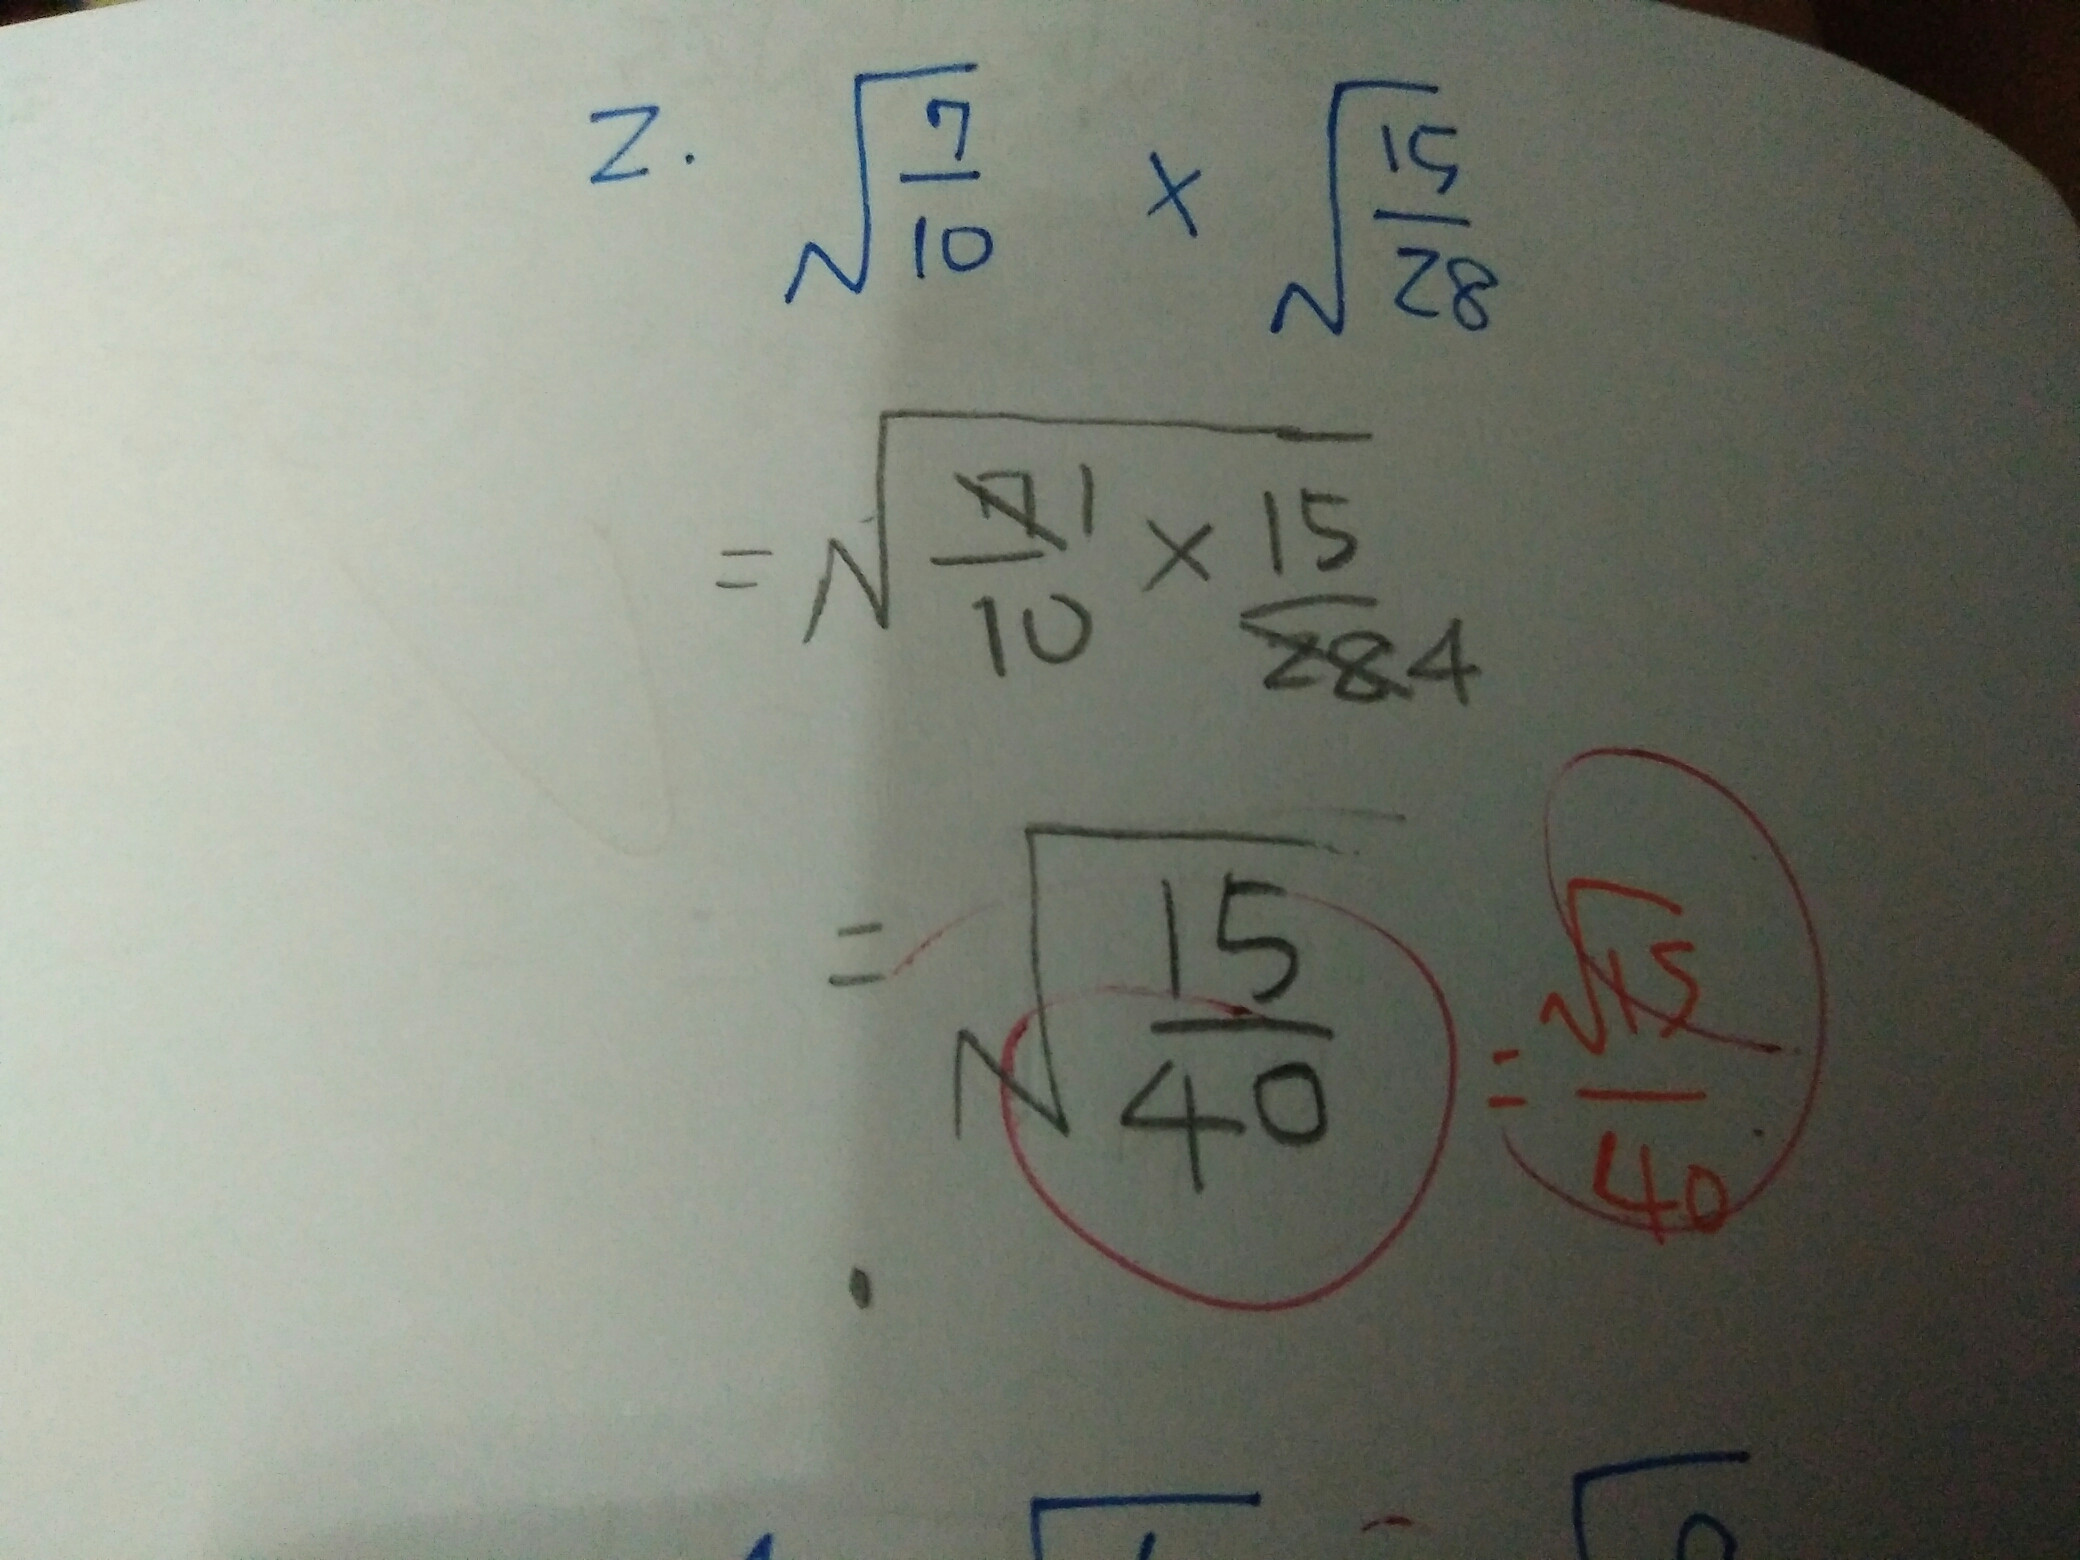 2. √(7/10) × √(15/28)
= √(7 1/10 × 15/28 4)
= √(15/40) = √15/40